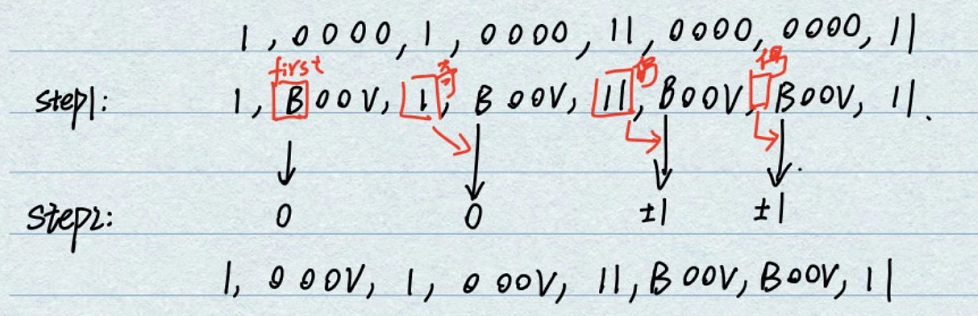 1, 0000, 1, 0000, 11, 0000, 0000, 11
first 奇 偶 偶
step1: 1, B00V, 1, B00V, 11, B00V, B00V, 11.
step2: 0 0 ±1 ±1
1, 000V, 1, 000V, 11, B00V, B00V, 11